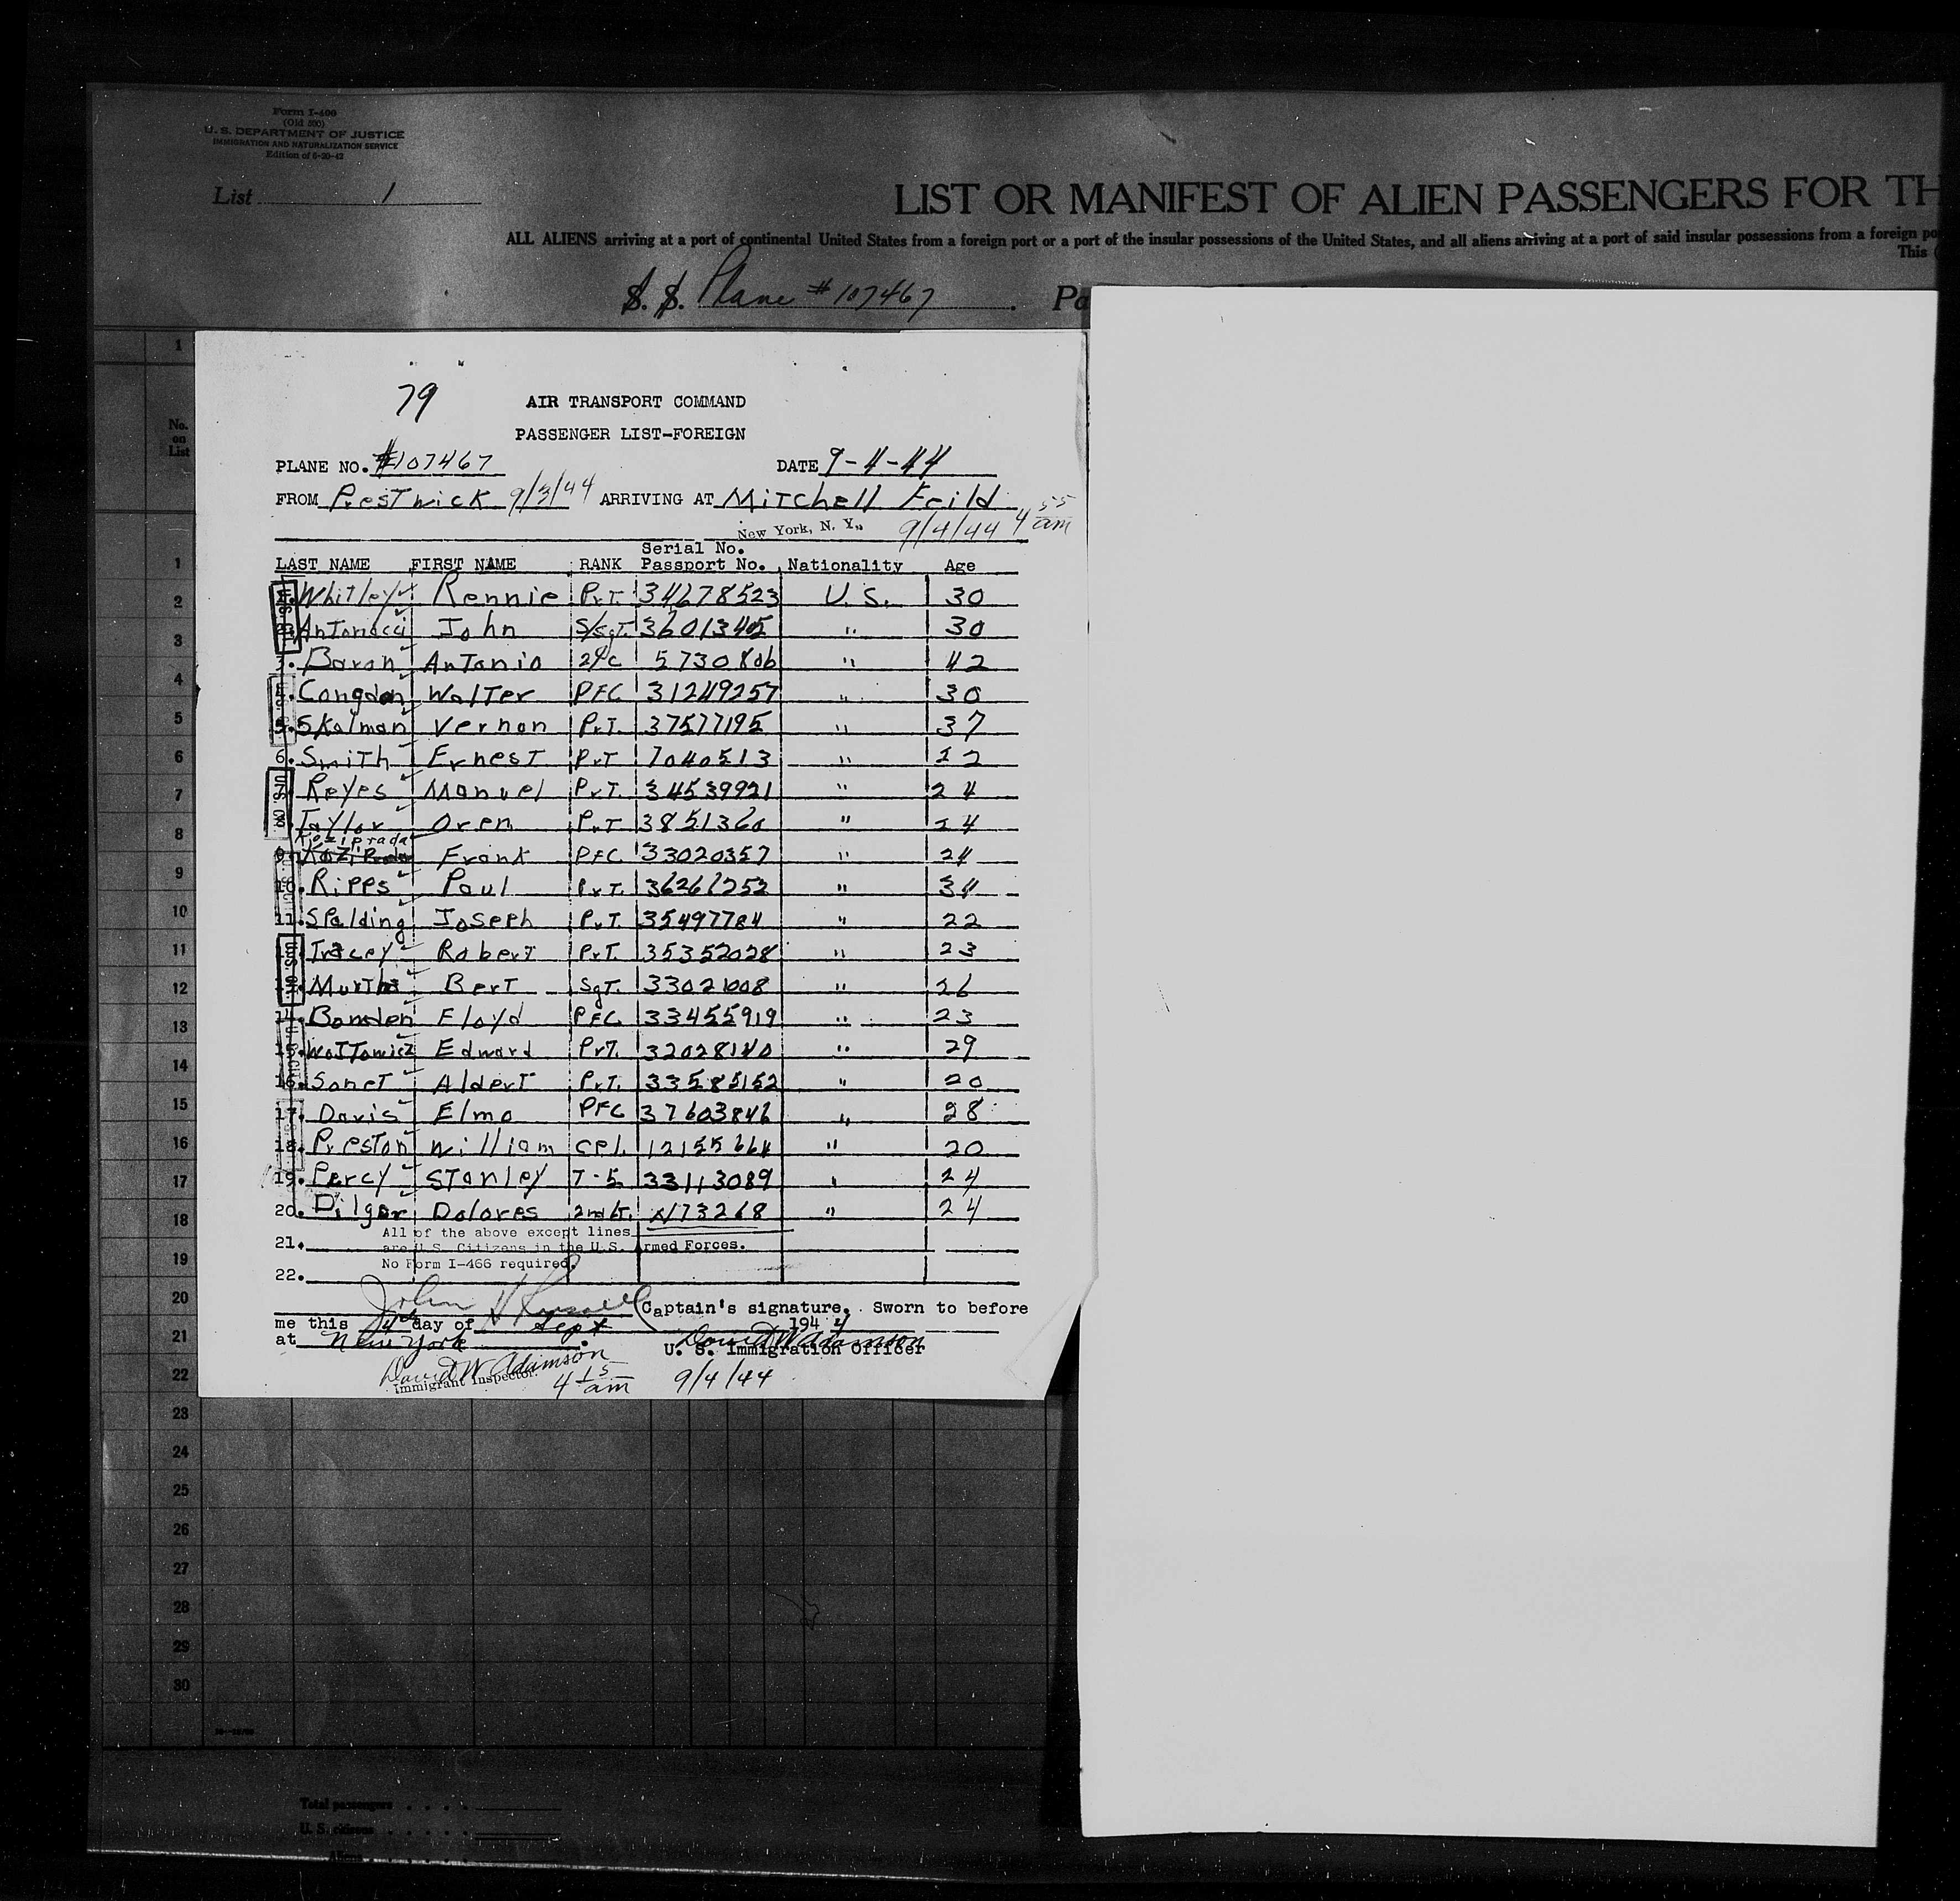 Form I-400
(Old 500)
U. S. DEPARTMENT OF JUSTICE
IMMIGRATION AND NATURALIZATION SERVICE
Edition of 6-20-42
List 1
LIST OR MANIFEST OF ALIEN PASSENGERS FOR TH
ALL ALIENS arriving at a port of continental United States from a foreign port or a port of the insular possessions of the United States, and all aliens arriving at a port of said insular possessions from a foreign po
This
S. S. Plane #107467 . Pa
No. on List
79
AIR TRANSPORT COMMAND
PASSENGER LIST-FOREIGN
PLANE NO. #107467 DATE 9-4-44
FROM PresTwick 9/3/44 ARRIVING AT MiTchell Feild
New York, N. Y., 9/4/44 4 55 am
LAST NAME FIRST NAME RANK Serial No. Passport No. Nationality Age
Whitley Rennie PvT. 34678523 U. S. 30
AnTonacci John S/sgT. 36013405 " 30
3. Baron AnTonio 2/c 5730806 " 42
Congdon WalTer PFC 31249257 " 30
5. Skalman Vernon PvT. 37577195 " 37
6. SmiTh ErnesT PvT 7040513 "
Reyes Manuel PvT. 34539921 " 24
Taylor Oren PvT 3851360 "
Koziprada
9. Frank PFC 33020357 " 24
10. Ripps Paul PvT. 36267252 " 34
11. Spalding Joseph PvT. 35497784 " 22
Tracey RoberT PvT. 35352028 " 23
Murtha BerT SgT. 33021008 " 26
14. Floyd PFC 33455919 " 23
15. WoJTowicz Edward PvT. 32028140 " 29
16. SaneT AlderT PvT. 33585152 " 20
17. Davis Elmo PFC 37603846 " 28
18. PresTon William Cpl. 12155664 " 20
19. Percy STanley T-5 33113089 " 24
20. Dilger Dolores 2nd LT. N173268 " 24
All of the above except lines
21. are U.S. Citizens in the U.S. Armed Forces.
No Form I-466 required.
22.
John H Russell Captain's signature. Sworn to before
me this 4th day of Sept 1944
at New York David W Adamson
U. S. Immigration Officer
David W Adamson
Immigrant Inspector. 4 15 am 9/4/44
1
2
3
4
5
6
7
8
9
10
11
12
13
14
15
16
17
18
19
20
21
22
23
24
25
26
27
28
29
30
Total passengers
U. S. citizens
Aliens